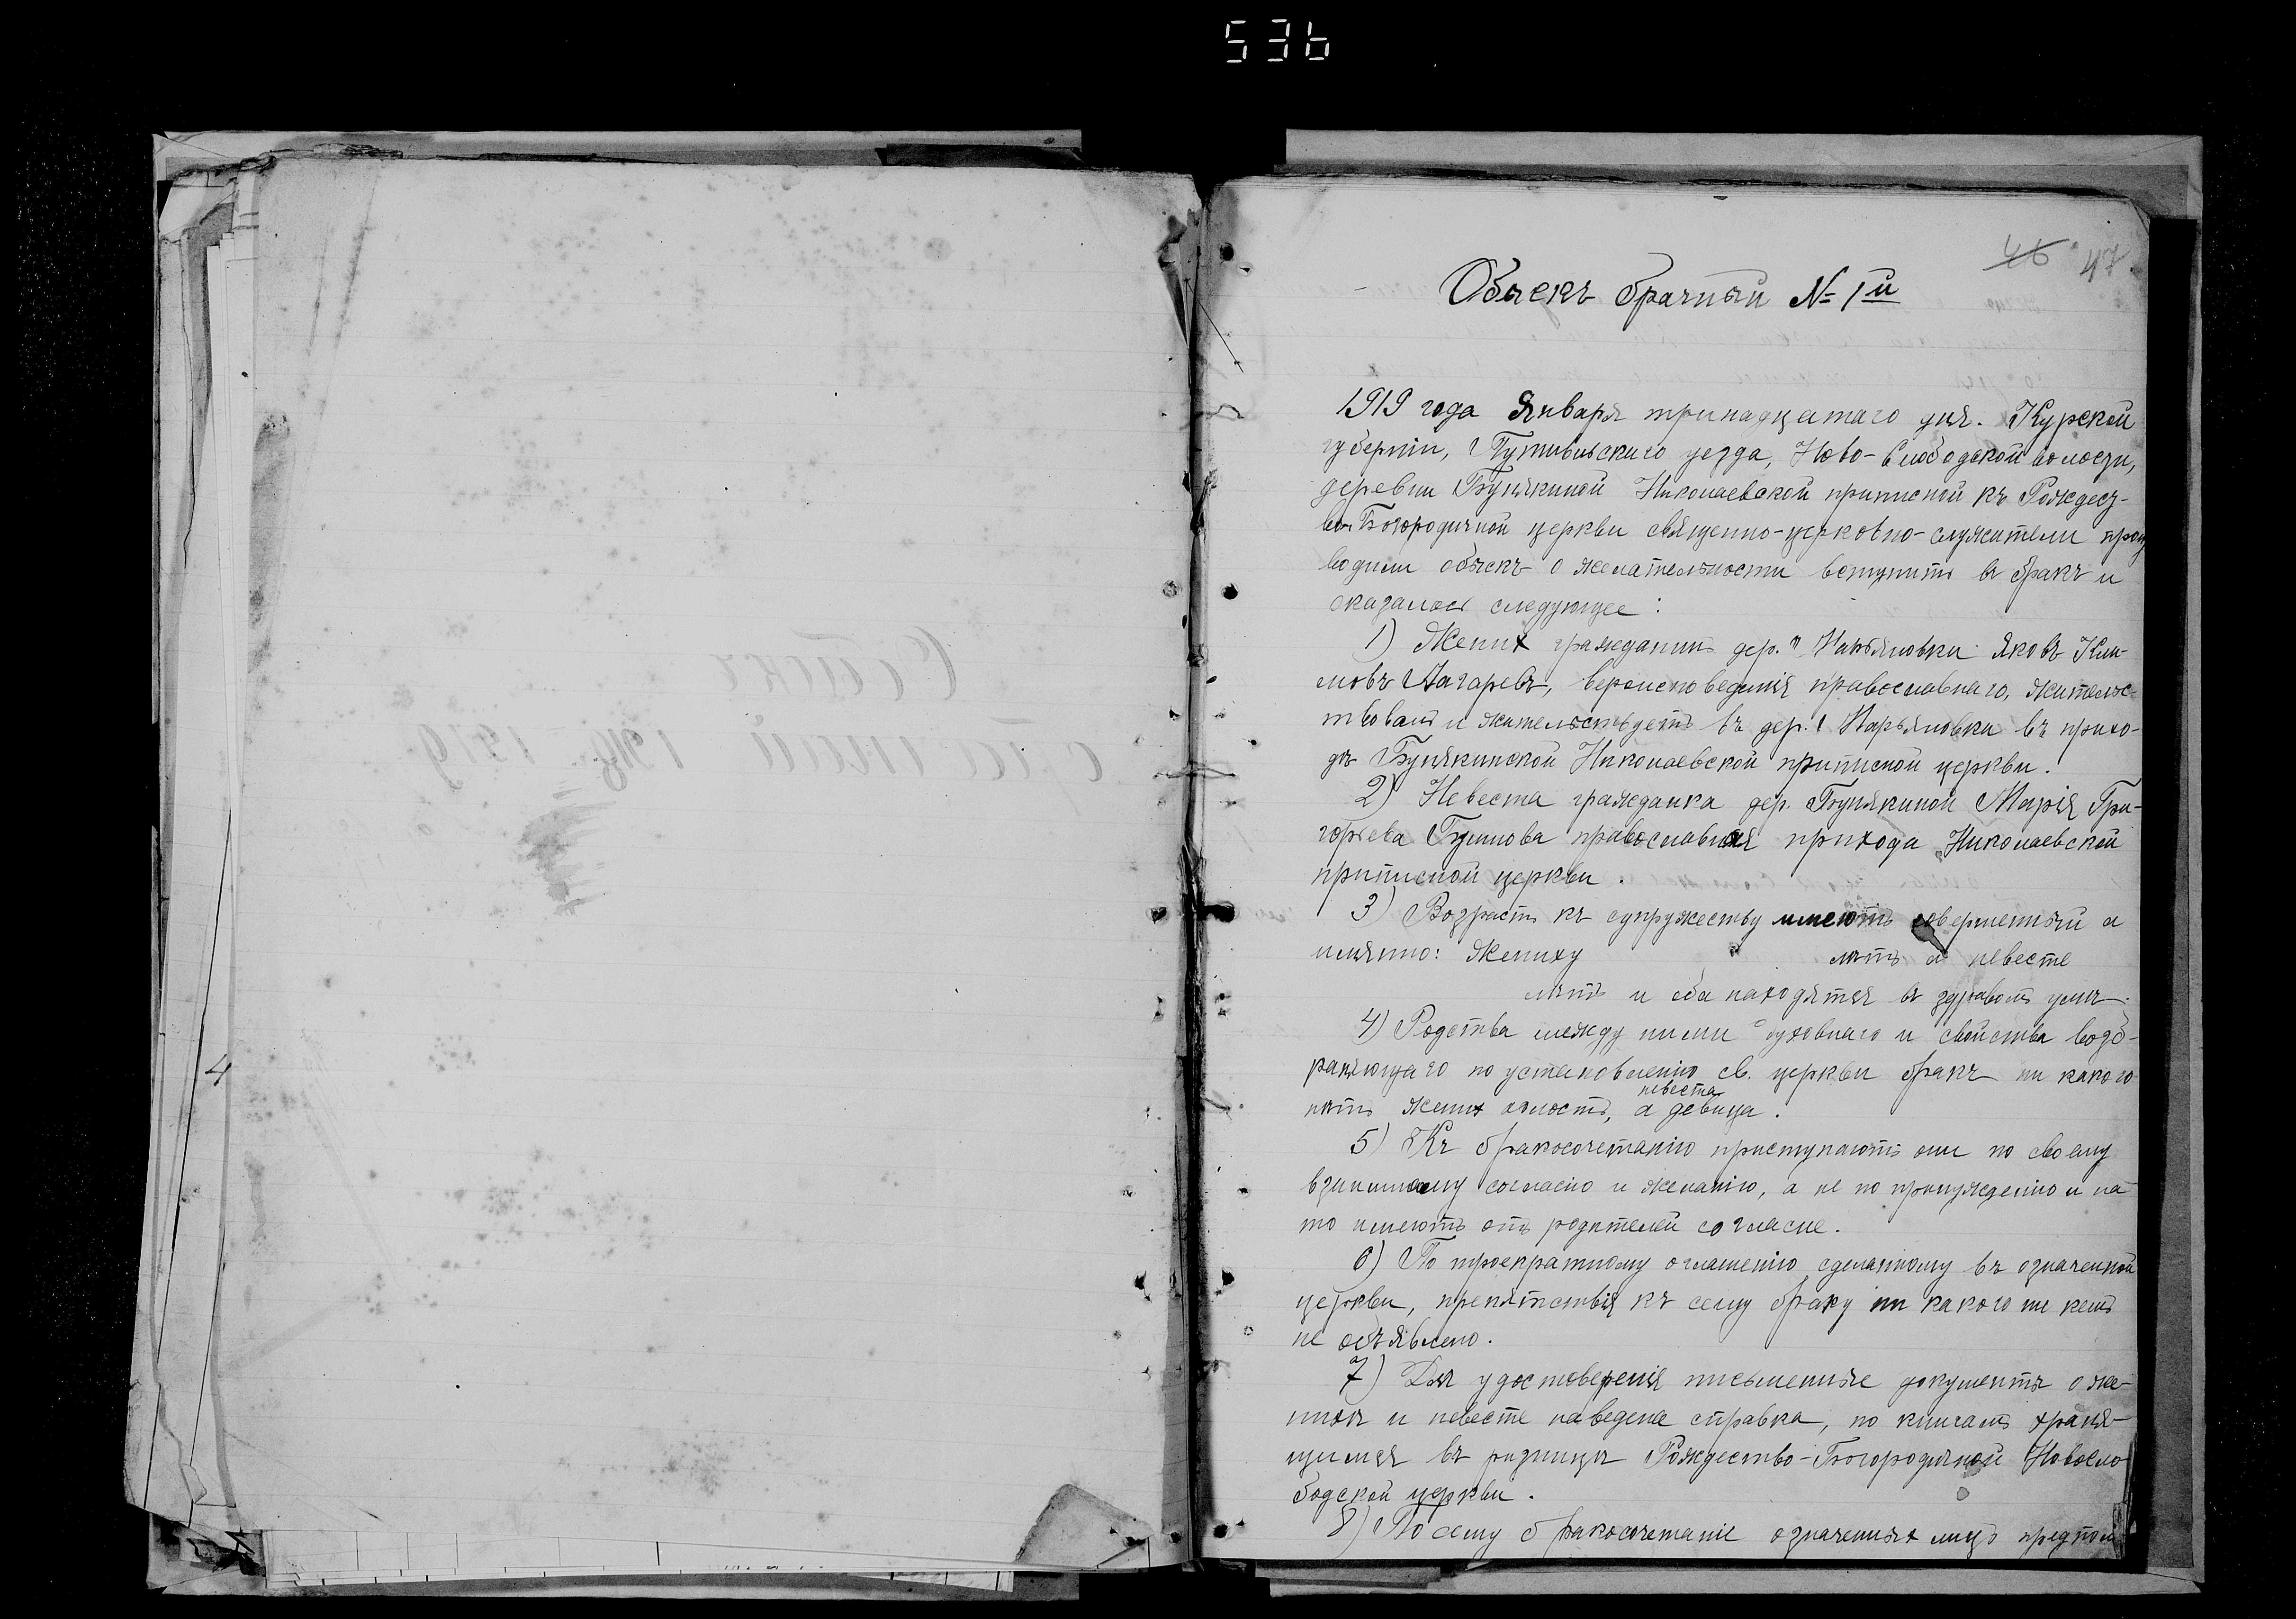 536
46 47
Обыскъ брачный № 1й
1919 года Января тринадцатаго дня. Курской
губерніи, Путивльскаго уезда, Ново-Слободской волости,
деревни Бунякиной Николаевской приписной къ Рождест-
во-Богородичной церкви священно-церковно-служители произ
водили обыскъ о желательности вступить въ бракъ и
оказалось следующее:
1) Жених гражданинъ дер. Марьяновки Яковъ Кли-
мовъ Агаревъ, вероисповеданія православнаго, жительс-
твовалъ и жительствуетъ въ дер. Марьяновки въ прихо-
дѣ Бунякинской Николаевской приписной церкви.
2) Невеста гражданка дер. Бунякиной Марія Гри-
горьева православная прихода Николаевской
приписной церкви.
3) Возрастъ къ супружеству имеютъ совершенный а
имянно: Жениху лѣтъ а невесте
лѣтъ и оба находятся въ здравомъ умѣ.
4) Родства между ними духовнаго и свойства возб-
раняющаго по установленію св. церкви бракъ ни какого
невеста
нѣтъ жених холостъ, а девица.
5) Къ бракосочетанію приступаютъ они по своему
взаимному согласію и желанію, а не по принужденію и на
то имеютъ отъ родителей согласие.
6) По троекратному оглашению сделанному въ означенной
церкви, препятствія къ сему браку ни какого ни кемъ
не объявлено.
7) Для удостоверенія письменные документы о же-
нихѣ и невесте наведена справка, по книгамъ храня-
щимся въ ризнице Рождество-Богородичной Новосло
бодской церкви.
8) По сему бракосочетаніе означенных лицъ предпол
4